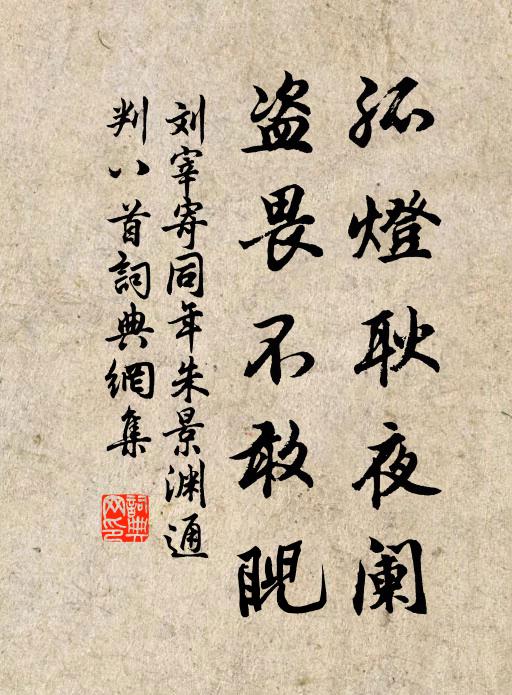 孤燈耿夜阑
盗畏不敢睨
刘宰寄同年朱景渊通
判八首詞典網集
詞典网印